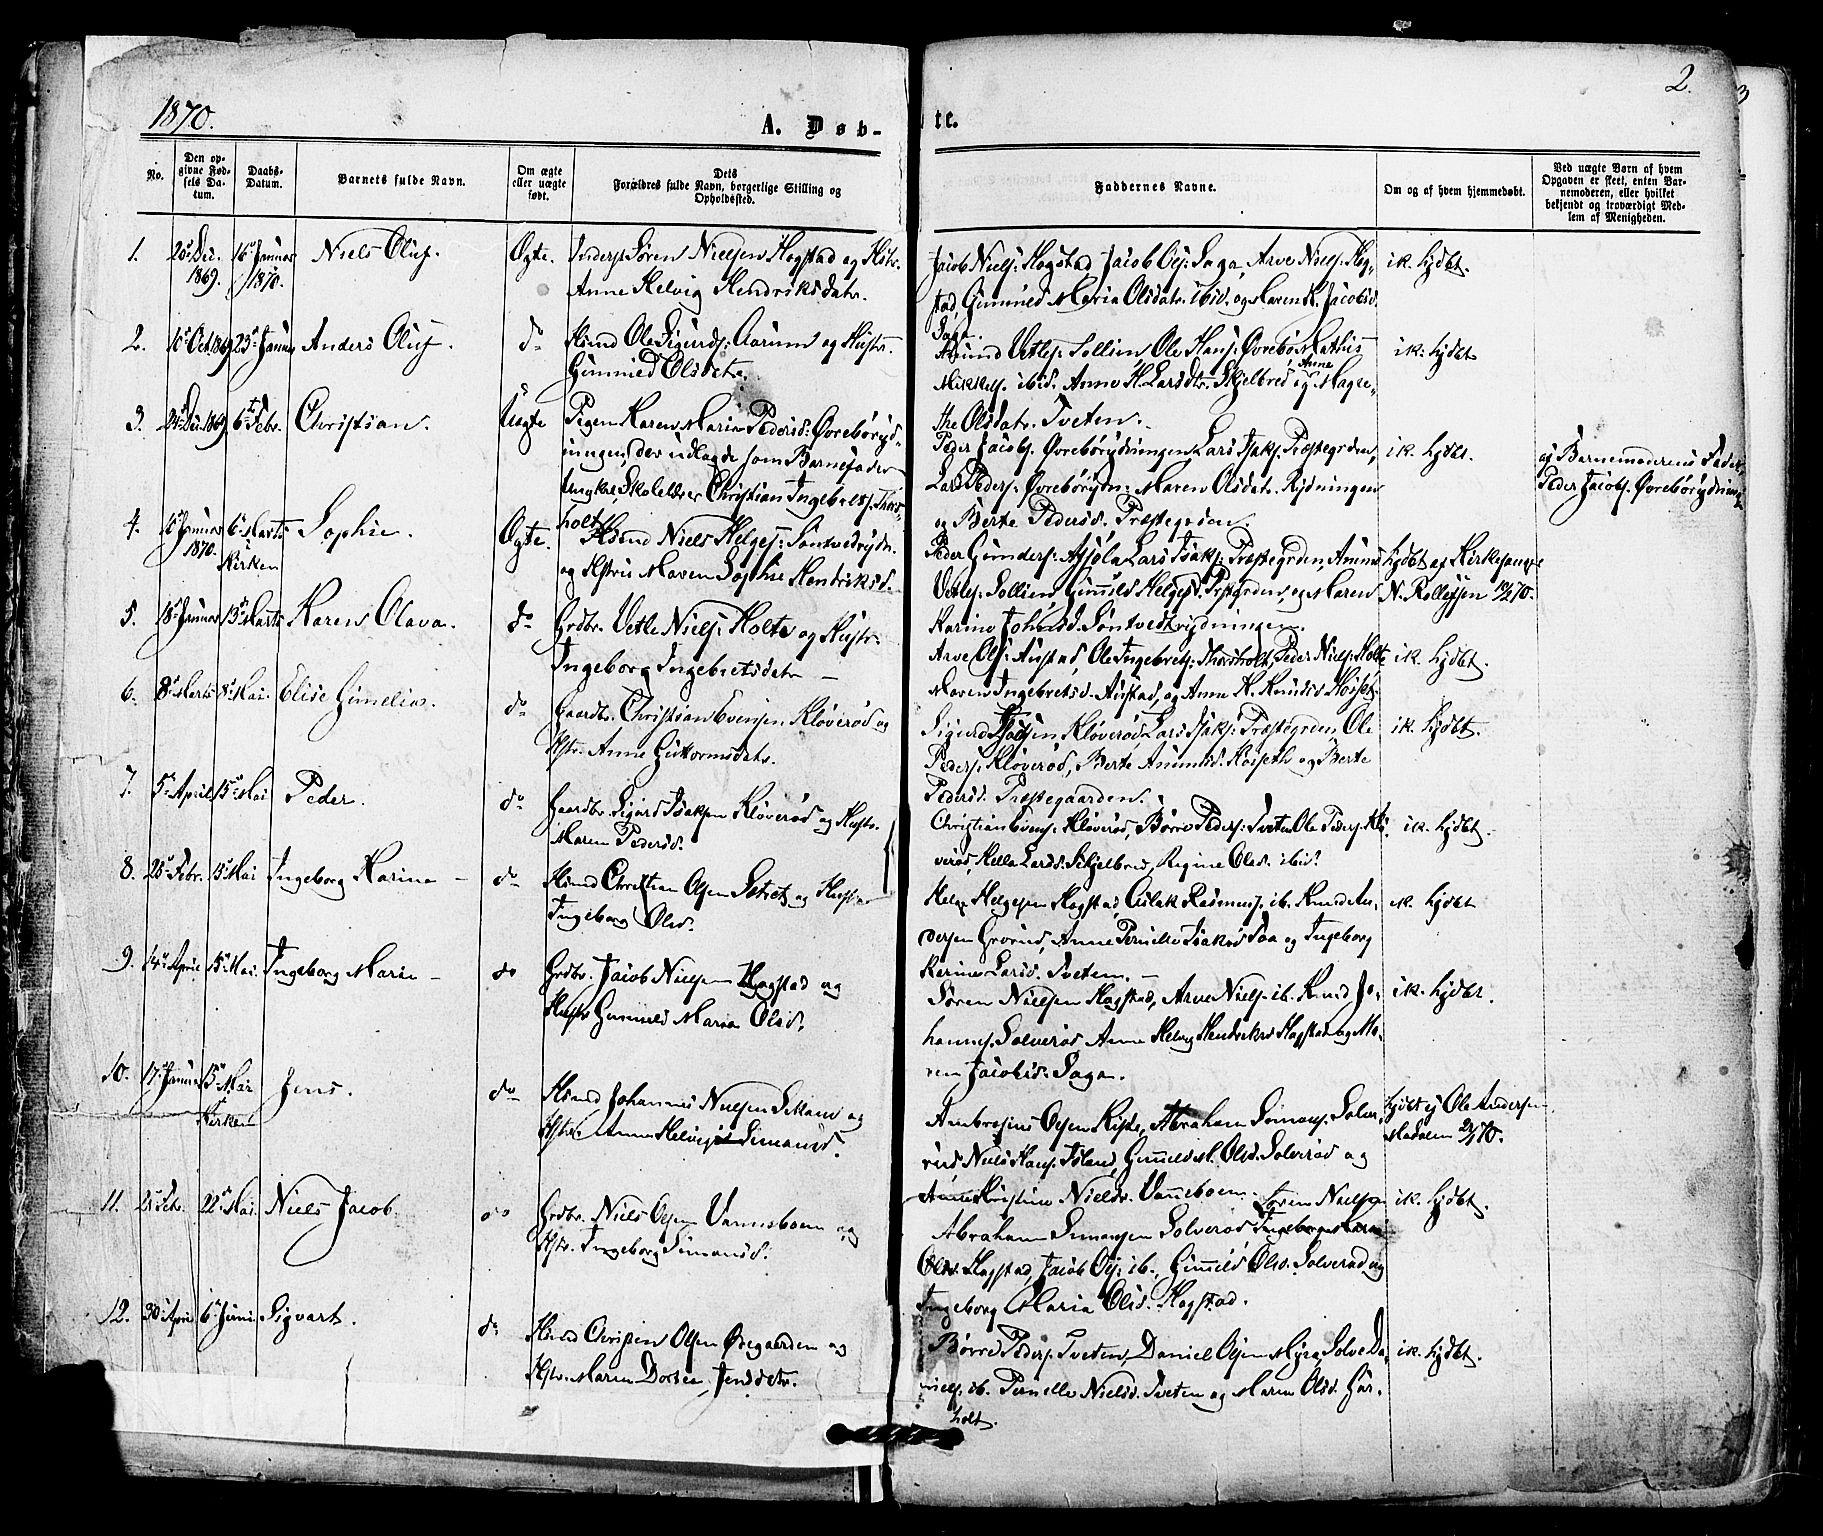 1870.
2.
3
A. Døb-
te.
No.
Den op-
givne Fød-
sels Da-
tum.
Daabs-
Datum.
Barnets fulde Navn.
Om ægte
eller uægte
født.
Dets
Forældres fulde Navn, borgerlige Stilling og
Opholdssted.
Faddernes Navne.
Om og af hvem hjemmedøbt.
Ved uægte Børn af hvem
Opgaven er skeet, enten Bar-
nemoderen, eller hvilket
bekjendt og troværdigt Med-
lem af Menigheden.
1.
Dec.
1869.
16 Januar
1870.
Niels Oluf.
Ægte.
Søren Nielsen Hogstad og Hstr.
Anne Helvig Hendriksdatr.
Jacob Niels: Hogstad, Jacob Ols: Saga, Arve Niels: Hog-
stad, Gunnild Maria Olsdatr. ibid. og Maren K. Jacobsd.
Saga.
ik. hjdbt.
2.
Oct. 1869
23 Januar
Anders Oluf.
do
Hsmd Ole Sigurds: Aarum og Hustr.
Gunnild Olsdatr.
Amund Vetles: Sollien Ole Hans: Øvrebø Mathis
Mikkels. ibid. Anne K. Larsdtr. Skjelbred og Anne Magre-
the Olsdatr. Tveten.
ik: hjdbt
3.
Dec. 1869
6 Febr.
Christian.
Uægte
Pigen Karen Maria Pedersd: Øvrebøryd-
ningen, der udlagde som Barnefader
Ungkar, Skolelærer Christian Ingebrets: Thors-
holt.
Peder Jacobs. Øvrebørydningen Lars Isaks. Præstegrden,
Lars Peders: Øvrebørydn: Maren Olsdatr. Rydningen
og Berte Pedersd. Præstegrden.
ik hjdbt.
af Barnemoderens Fader
Peder Jacobs. Øvrebørydning
4.
Januar
1870.
6 Marts
Kirken
Sophie.
Ægte.
Hsmd Niels Helges: Søntvedrydn.
og Hstru Maren Sophie Hendriksd.
Peder Gunders: Lars Isaks: Præstegrden, Amund
Vetles: Sollien, Gunnild Helgesd. Præstgrden, og Maren
Karine Johnsd. Søntvedtrydningen.
hjdbt af Kirkesanger
N. Rollefsen
5.
18 Januar
13 Marts
Karen Olava.
do
Grdbr. Vetle Niels: Holte og Hustr.
Ingeborg Ingebretsdatr –
Arve Ols: Austad, Ole Ingebrets: Thorsholt, Peder Niels: Holte
Maren Ingebretsd. Austad, og Anne K. Knudsd.
ik. hjdbt.
6.
8 Marts
8 Mai.
Elise Gunelia.
do
Gaardbr. Christian Evensen Kløverød og
Hstr. Anne Guttormsdatr.
Sigurd Isaksen Kløverød, Lars Isaks: Præstegrden, Ole
Peders. Kløverød, Berte Amunds. og Berte
Pedersd. Præstegaarden.
ik hjdbt.
7.
5 April
15 Mai
Peder.
do
Gaardbr. Sigurd Isaksen Kløverød og Hustr.
Maren Pedersd.
Christian Evens. Kløverød, Børre Peders: Tveten Ole Peders. Klø-
verød, Helle Larsd. Skjelbred, Regine Olsd. ibid.
ik. hjdbt.
8.
Febr.
15 Mai
Ingeborg Karine –
do
Hsmd Christian Olsen Setret og Hustr
Ingeborg Olsd.
Helge Helgesen Hogstad, Aslak Rasmus. ib. Knud An-
dersen Anne Pernille Isaksd Saa og Ingeborg
Karine Larsd. Tveten. –
ik. hjdbt
9.
14 April
15 Mai.
Ingeborg Marie –
do
Grdbr. Jacob Nielsen Hogstad og
Hustr Gunnild Maria Olsd.
Søren Nielsen Hogstad, Arve Niels. ib. Knud Jo-
hannes. Solverød Anne Helvig Hendriksd Hogstad og Ma-
ren Jacobsd. Saga.
ik. hjdbt.
10.
17 Januar
15 Mai
Kirken
Jens.
do
Hsmd Johannes Nielsen og
Hstr. Anne Helvig Simonsd.
Ambrosius Olsen Abraham Simons. Solve-
rød Niels Hans. Island, Gunnild M. Olsd. Solverød og
Anne Kristine Nielsd. Vanneboen.
hjdbt af Ole Andersen
70.
11.
Febr.
22 Mai.
Niels Jacob.
do
Grdbr. Niels Olsen Vanneboen og
Hstr. Ingeborg Simonsd.
Søren Nielsen
Abraham Simonsen Solverød Ingeborg Karine
Olsd. Hogstad, Jacob Ols: ib., Gunnild Olsd. Solverød og
Ingeborg Maria Olsd. Hogstad.
ik. hjdbt.
12.
30 April
6 Juni
Sigvart.
do
Hsmd Christen Olsen Øregaarden og
Hstr. Maren Dorthea Jensdtr.
Børre Peders. Tveten, Daniel Olsen Myra, Solve Da-
niels. ib. Pernille Nielsd. Tveten og Maren Olsd. Gar-
holt.
ik. hjdbt.